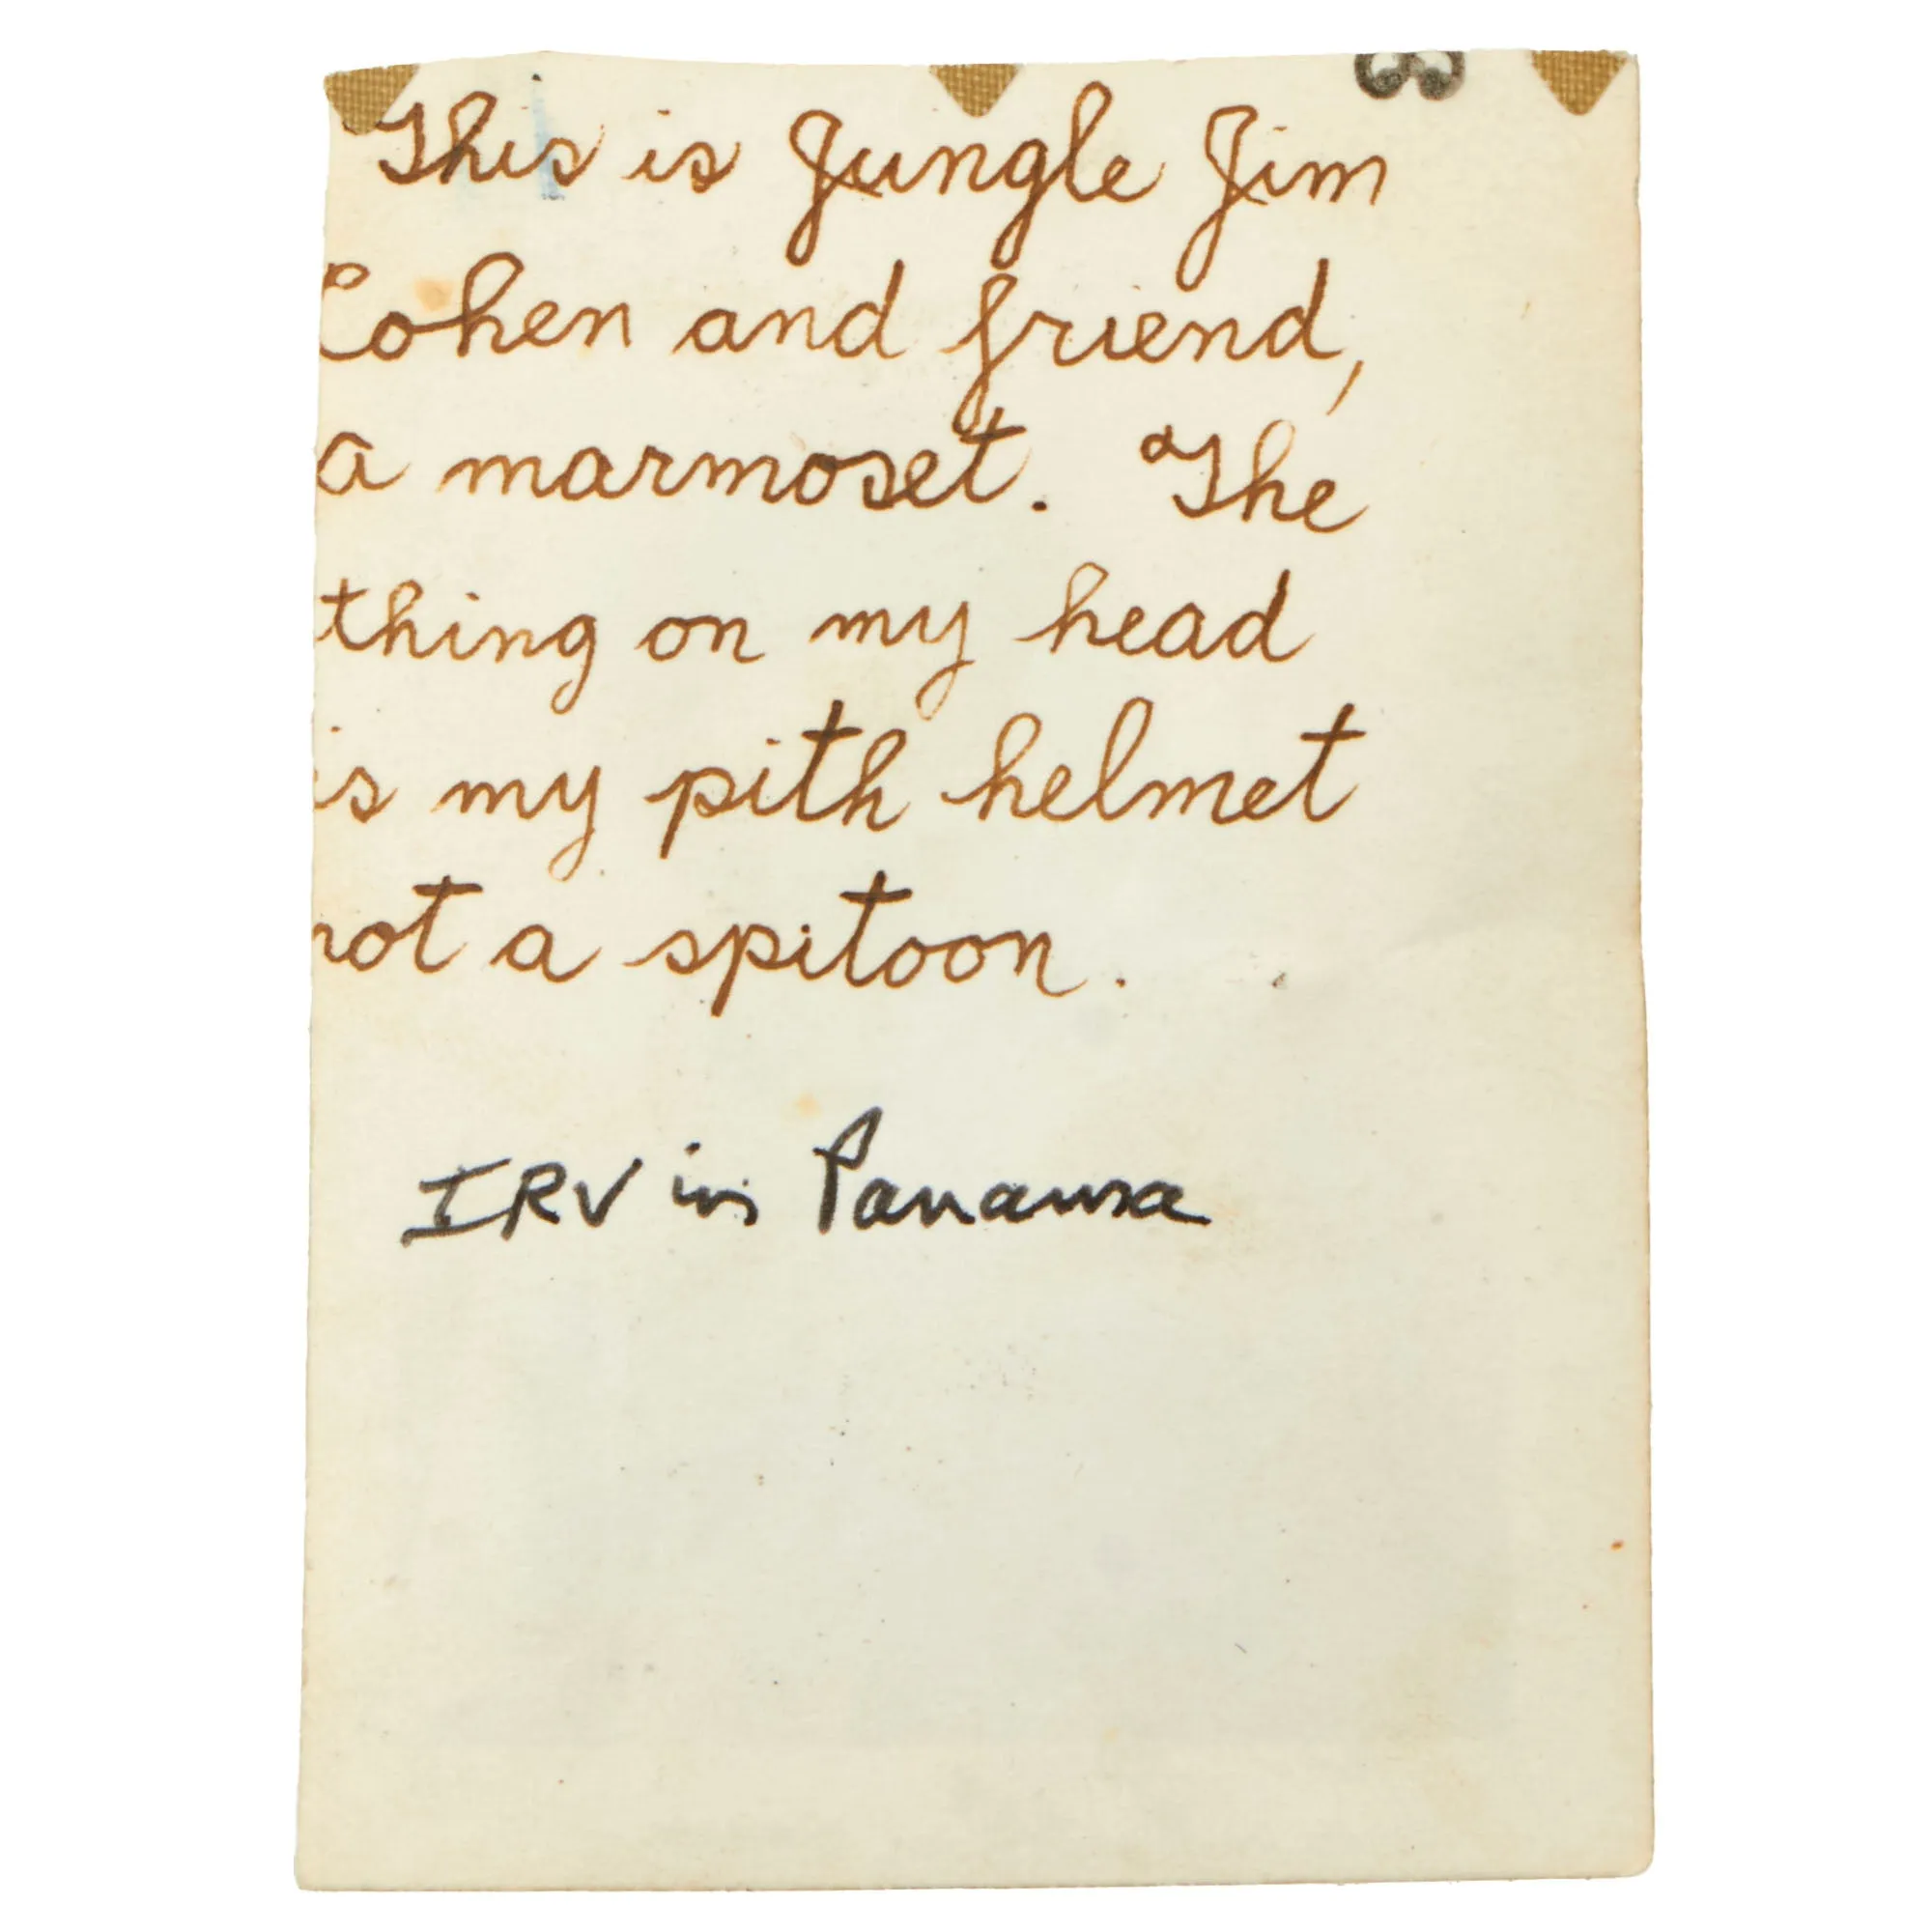 This is Jungle Jim
Cohen and friend,
a marmoset. The
thing on my head
is my pith helmet
not a spitoon.
IRV in Panama